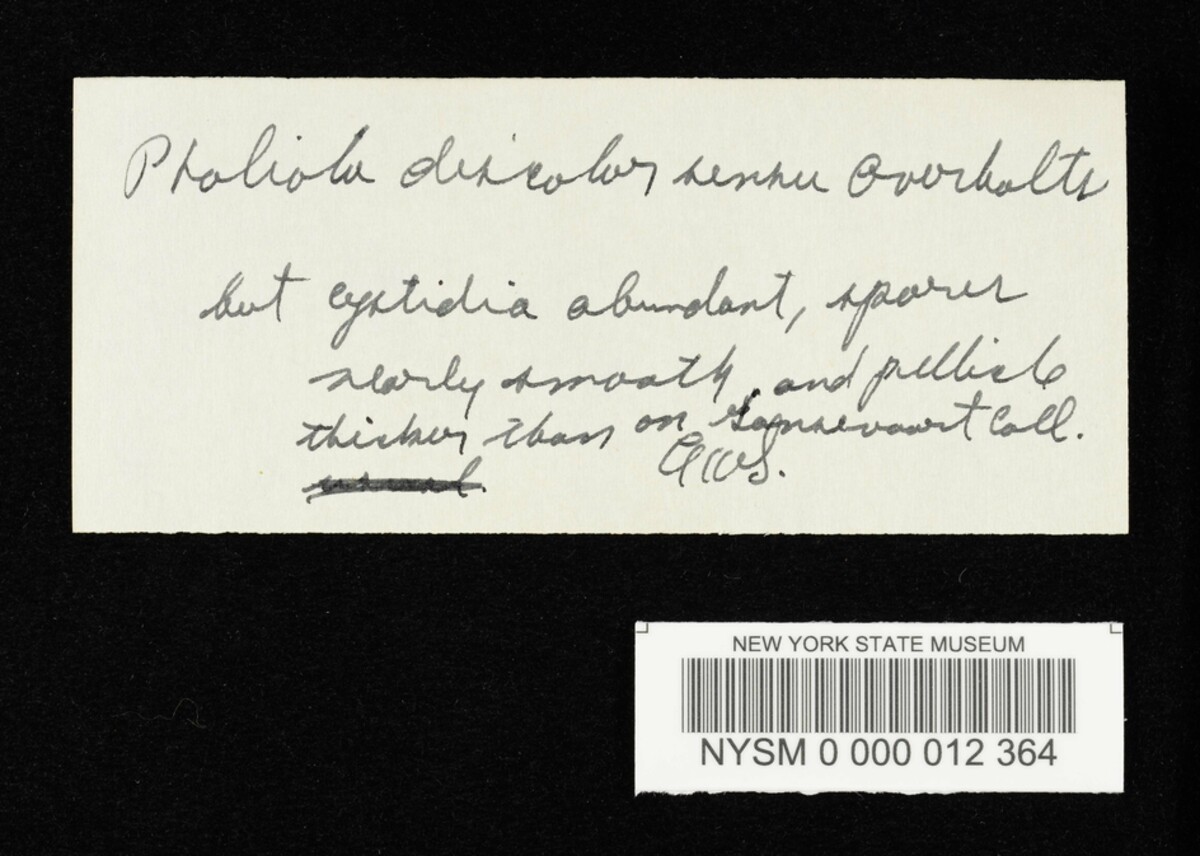 Pholiota discolor sensu Overholts
but cystidia abundant, spores
nearly smooth, and pellicle
thicker than on Gansevoort Coll.
usual. AHS.
NEW YORK STATE MUSEUM
NYSM 0 000 012 364